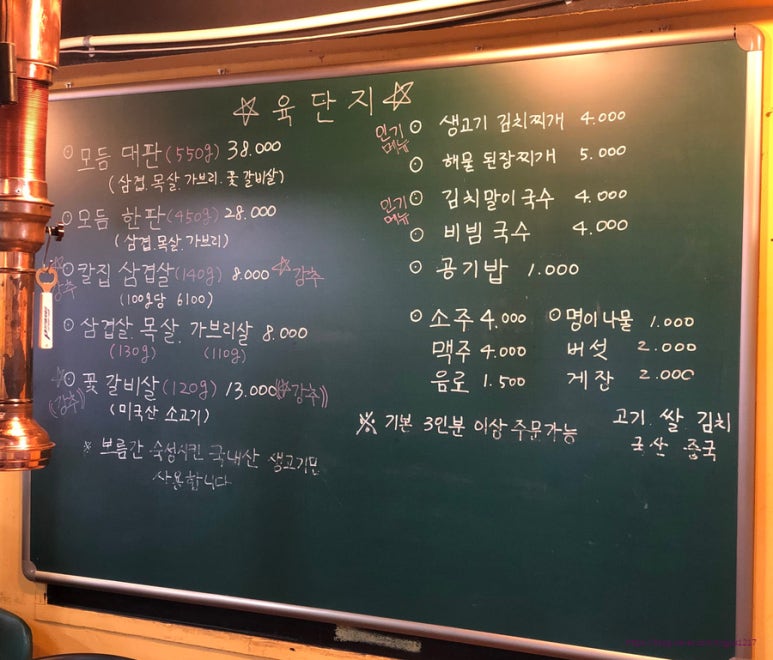 ☆ 육단지 ☆
⊙ 모듬 대판 (550g) 38.000
(삼겹.목살.가브리.꽃갈비살)
⊙ 모듬 한판 (450g) 28.000
(삼겹.목살.가브리)
강추 ⊙ 칼집 삼겹살 (140g) 8.000 ☆강추
(100g당 6100)
⊙ 삼겹살.목살.가브리살 8.000
(130g) (110g)
☆ (강추)) ⊙ 꽃갈비살 (120g) 13.000 ((☆강추))
(미국산 소고기)
※ 보름간 숙성시킨 국내산 생고기만
사용합니다
인기메뉴 ⊙ 생고기 김치찌개 4.000
⊙ 해물 된장찌개 5.000
인기메뉴 ⊙ 김치말이 국수 4.000
⊙ 비빔국수 4.000
⊙ 공기밥 1.000
⊙ 소주 4.000 ⊙ 명이나물 1.000
맥주 4.000 버섯 2.000
음로 1.500 게잔 2.000
※ 기본 3인분 이상 주문가능
고기.쌀.김치
국산 중국